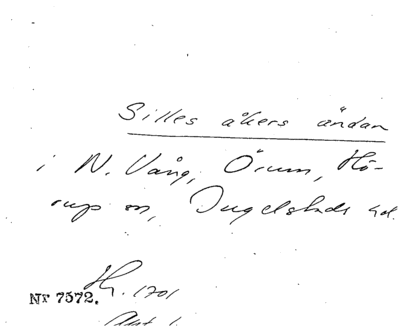 Silles åkers ändan
i N. Vång, Örum, Hö-
rup sn, Ingelstads hd.
Hh. 1701
Nr 7572.
Akt 1.